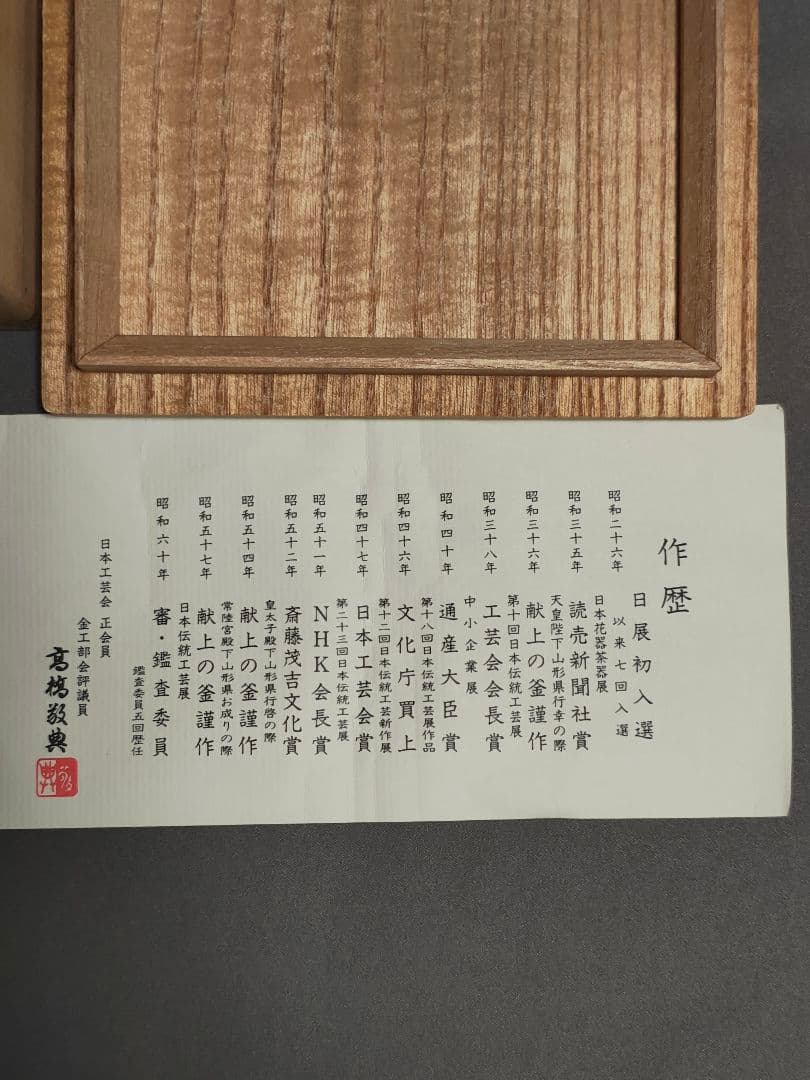 作歴
昭和二十六年 日展初入選
以来七回入選
日本花器茶器展
昭和三十五年 読売新聞社賞
天皇陛下山形県行幸の際
昭和三十六年 献上の釜謹作
第十回日本伝統工芸展
昭和三十八年 工芸会会長賞
中小企業展
昭和四十年 通産大臣賞
第十八回日本伝統工芸展作品
昭和四十六年 文化庁買上
第十二回日本伝統工芸新作展
昭和四十七年 日本工芸会賞
第二十三回日本伝統工芸展
昭和五十一年 NHK会長賞
昭和五十二年 斎藤茂吉文化賞
皇太子殿下山形県行啓の際
昭和五十四年 献上の釜謹作
常陸宮殿下山形県お成りの際
昭和五十七年 献上の釜謹作
日本伝統工芸展
昭和六十年 審・鑑査委員
鑑査委員五回歴任
日本工芸会 正会員
金工部会評議員
高橋敬典